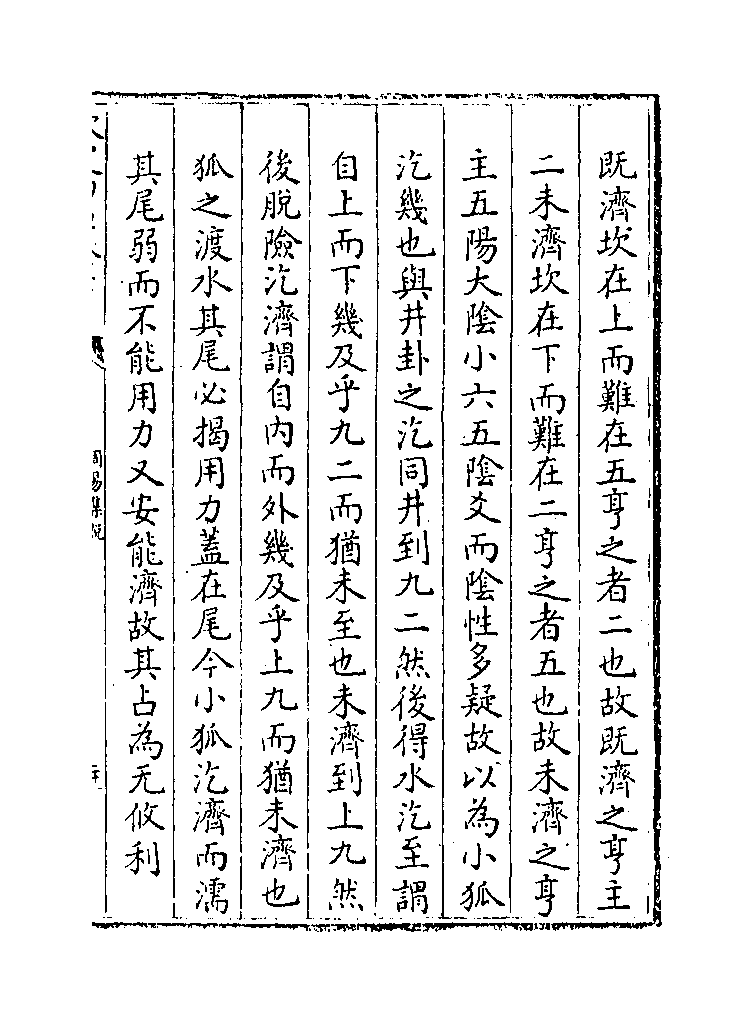 既濟坎在上而難在五亨之者二也故既濟之亨主
二未濟坎在下而難在二亨之者五也故未濟之亨
主五陽大陰小六五陰爻而陰性多疑故以為小狐
汔幾也與井卦之汔同井到九二然後得水汔至謂
自上而下幾及乎九二而猶未至也未濟到上九然
後脫險汔濟謂自内而外幾及乎上九而猶未濟也
狐之渡水其尾必揭用力蓋在尾今小狐汔濟而濡
其尾弱而不能用力又安能濟故其占為无攸利
周易集說